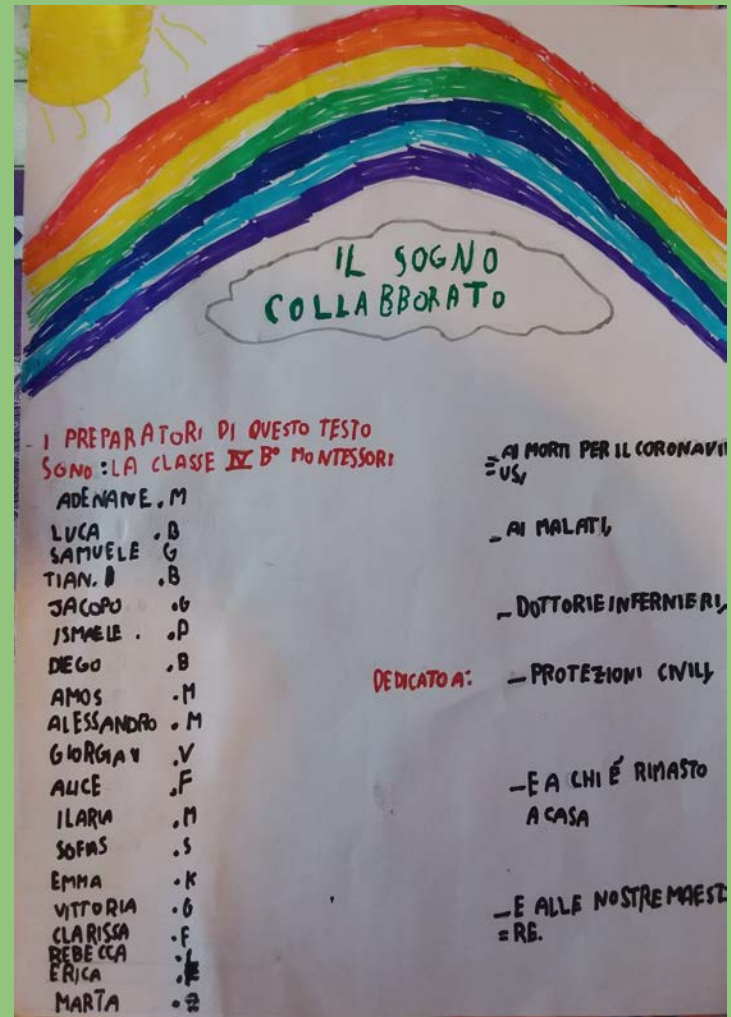 IL SOGNO
COLLABBORATO
I PREPARATORI DI QUESTO TESTO
SONO: LA CLASSE IV B° MONTESSORI
ADENANE. M
LUCA .B
SAMUELE G
TIAN. .B
JACOPO .G
ISMAELE . .P
DIEGO .B
AMOS .M
ALESSANDRO .M
GIORGIA .V
ALICE .F
ILARIA .M
SOFIA .S
EMMA .K
VITTORIA .G
CLARISSA .F
REBECCA
ERICA
MARTA
DEDICATO A:
_ AI MORTI PER IL CORONAVI
=US,
_ AI MALATI,
_ DOTTORI E INFERNIERI,
_ PROTEZIONI CIVILI,
_ E A CHI É RIMASTO
A CASA
_ E ALLE NOSTRE MAEST
=RE.